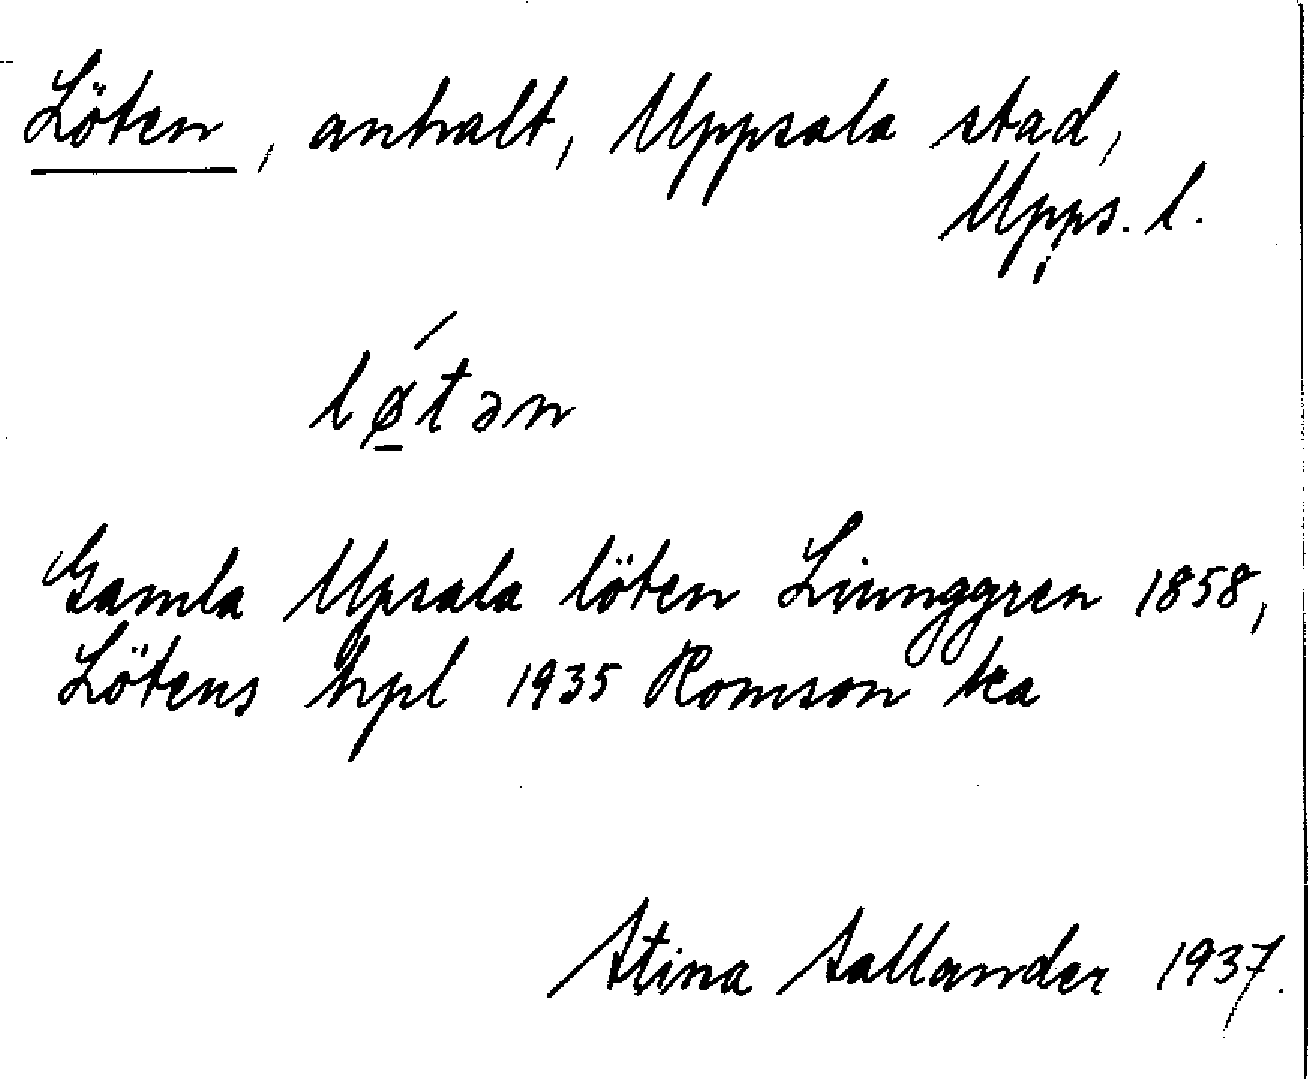 Löten, anhalt, Uppsala stad,
Upps. l.
lǿ̱tən
Gamla Upsala löten Liunggren 1858,
Lötens hpl 1935 Romson ka
Stina Sallander 1937.